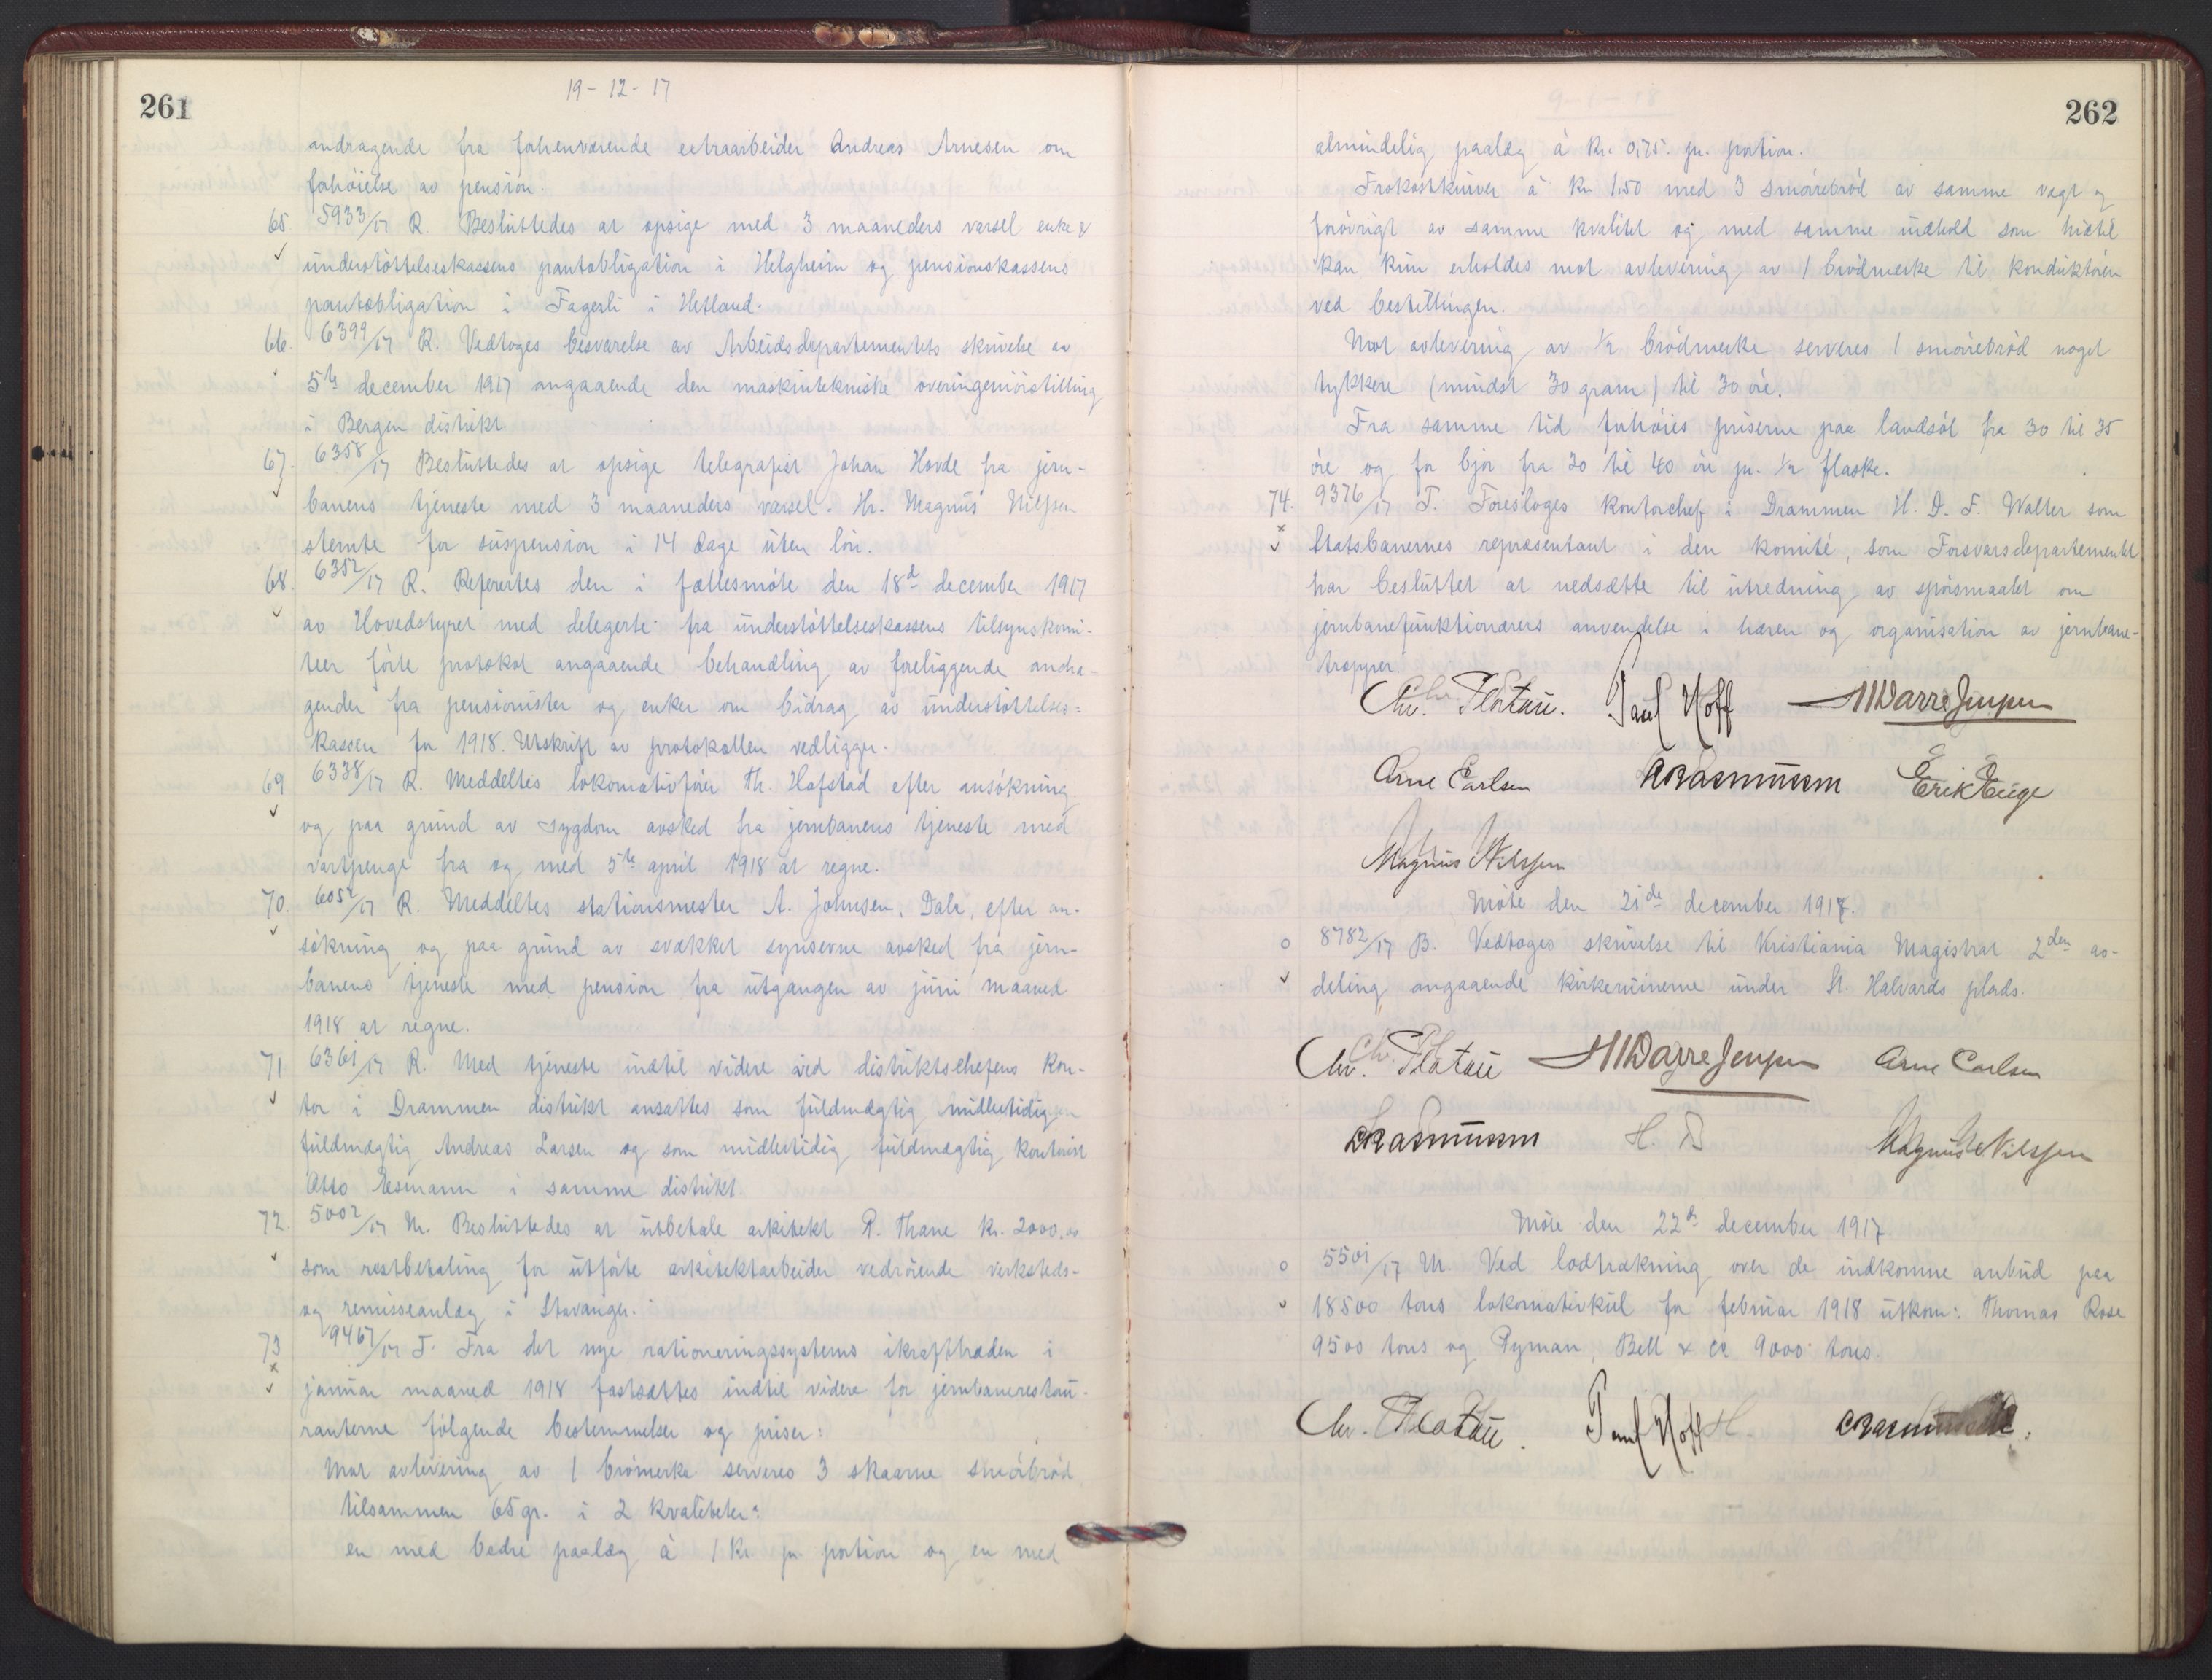 261
19-12-17
andragende fra forhenværende extraarbeider Andreas Arnesen om
forhöielse av pension.
65. 5933/17 R. Besluttedes at opsige med 3 maaneders varsel enke &
understöttelseskassens pantobligation i Helgheim og pensionskassens
pantobligation i Fagerli i Hetland.
66. 6399/17 R. Vedtoges besvarelse av Arbeidsdepartementets skrivelse av
5te december 1917 angaaende den maskintekniske overingeniörstilling
i Bergen distrikt
67. 6358/17 Besluttedes at opsige telegrafist Johan Hovde fra jern-
banens tjeneste med 3 maaneders varsel. Hr. Magnus Nilssen
stemte for suspension i 14 dage uten lön.
68. 6352/17 R. Refertes den i fællesmöte den 18de december 1917
av Hovedstyret med delegerte fra understöttelseskassens tilsynskomi-
teer förte protokol angaaende behandling av foreliggende andra-
gender fra pensionister og enker om bidrag av understöttelses-
kassen for 1918. Utskrift av protokollen vedligger.
69 6338/17 R. Meddeltes lokomotivförer Th. Hafstad efter ansökning
og paa grund av sygdom avsked fra jernbanens tjeneste med
vartpenge fra og med 5te april 1918 at regne.
70. 6052/17 R. Meddeltes stationsmester A. Johnsen, Dale, efter an-
sökning og paa grund av svækket synsevne avsked fra jern-
banens tjeneste med pension fra utgangen av juni maaned
1918 at regne.
71 6361/17 R. Med tjeneste indtil videre ved distriktschefens kon-
tor i Drammen distrikt ansattes som fuldmægtig midlertidig
fuldmægtig Andreas Larsen og som midlertidig fuldmægtig kontorist
Otto Næsmann i samme distrikt.
72. 5002/17 M. Besluttedes at utbetale arkitekt P. Thrane kr. 2000.00
som restbetaling for utförte arkitektarbeider vedrörende verksteds-
og remisseanlæg i Stavanger.
73 9467/17 T. Fra det nye rationeringssystems ikrafttræden i
januar maaned 1918 fastsættes indtil videre for jernbanerestau-
ranterne fölgende bestemmelser og priser:
Mot avlevering av 1 brömerke serveres 3 skaarne smörbröd
tilsammen 65 gr. i 2 kvaliteter:
en med bedre paalæg à 1 kr pr. portion og en med
262
almindelig paalæg à Kr. 0,75 pr. portion.
Frokostkurver à Kr 1.50 med 3 smörrebröd av samme vegt og
forövrigt av samme kvalitet og med samme indhold som hittil
kan kun erholdes mot avlevering av 1 brödmerke til konduktören
ved bestillingen.
Mot avlevering av 1/2 brödmerke serveres 1 smörrebröd noget
tykkere (mindst 30 gram) til 30 öre.
Fra samme tid forhöies priserne paa landsöl fra 30 til 35
öre og for bjor fra 30 til 40 öre pr. 1/2 flaske.
74. 9376/17 T. Foresloges kontorchef i Drammen H. D. F. Walter som
Statsbanernes repræsentant i den komité, som Forsvarsdepartementet
har besluttet at nedsætte til utredning av spörsmaalet om
jernbanefunktionærers anvendelse i hæren og organisation av jernbane-
tropper
Chr. Platou. Paul Hoff AWarreJenssen
Arne Carlsen Rasmussen Erik Enge
Magnus Nilssen
Möte den 21de december 1917.
8782/17 B. Vedtoges skrivelse til Kristiania Magistrat 2den av-
deling angaaende kirkeruinerne under St. Halvards plads.
Chr. Platou AWarreJenssen Arne Carlsen
Rasmussen H. Magnus Nilssen
Möte den 22de december 1917.
5501/17 M Ved lodtrækning over de indkomne anbud paa
18500 tons lokomotivkul for februar 1918 utkom: Thomas Rose
9500 tons og Pyman, Bell & Co 9000 tons.
Chr. Platou. Paul Hoff H. Rasmussen.